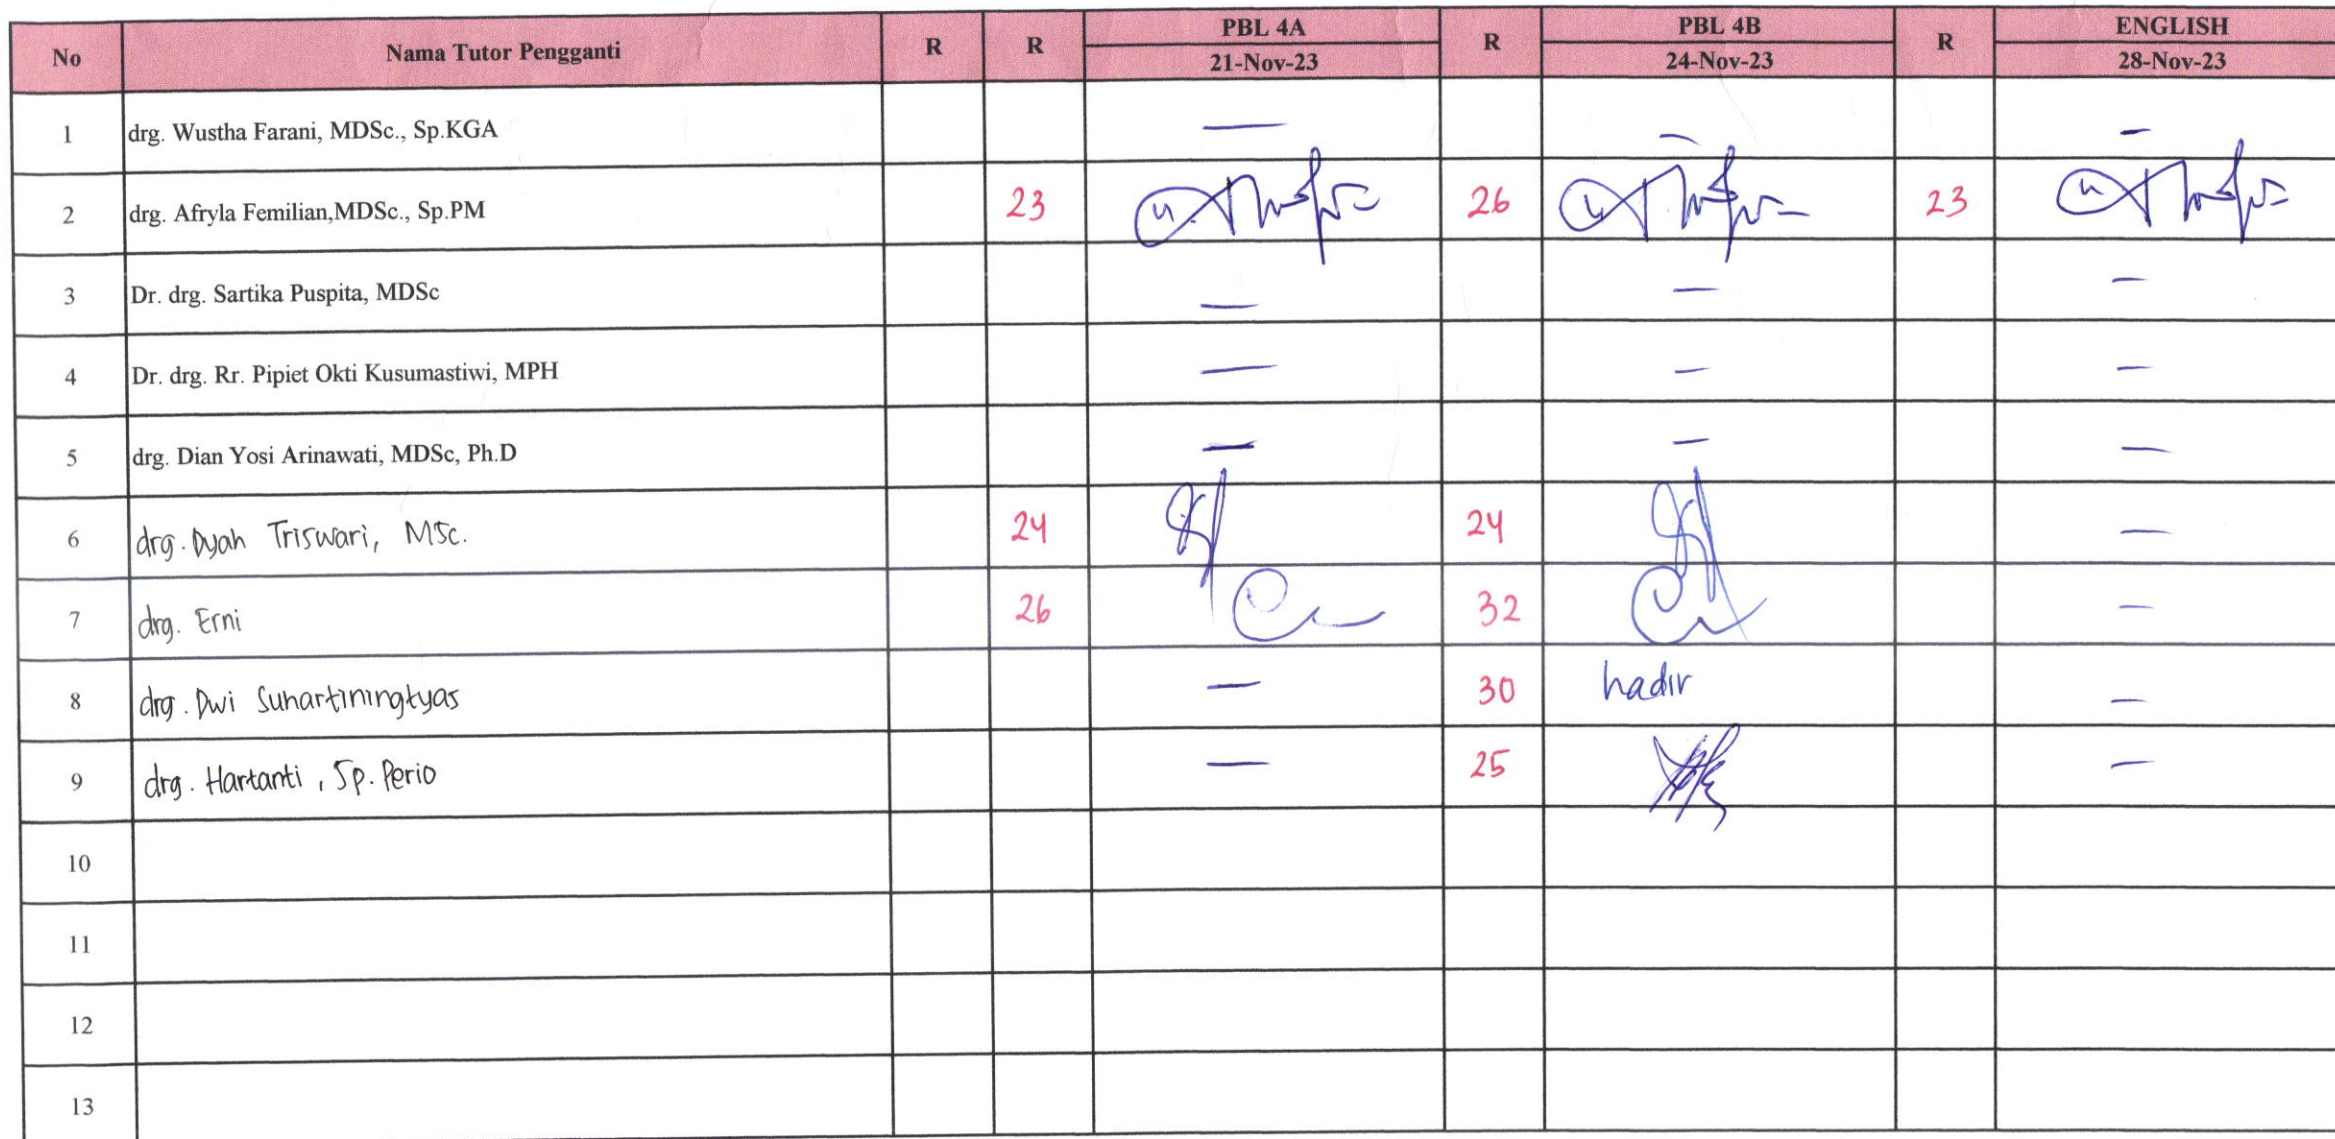 No Nama Tutor Pengganti R R PBL 4A R PBL 4B R ENGLISH
21-Nov-23 24-Nov-23 28-Nov-23
1 drg. Wustha Farani, MDSc., Sp.KGA — — —
2 drg. Afryla Femilian,MDSc., Sp.PM 23 26 23
3 Dr. drg. Sartika Puspita, MDSc — — —
4 Dr. drg. Rr. Pipiet Okti Kusumastiwi, MPH — — —
5 drg. Dian Yosi Arinawati, MDSc, Ph.D — — —
6 drg. Dyah Triswari, MSc. 24 24 —
7 drg. Erni 26 32 —
8 drg. Dwi Suhartiningtyas — 30 hadir —
9 drg. Hartanti, Sp. Perio — 25 —
10
11
12
13